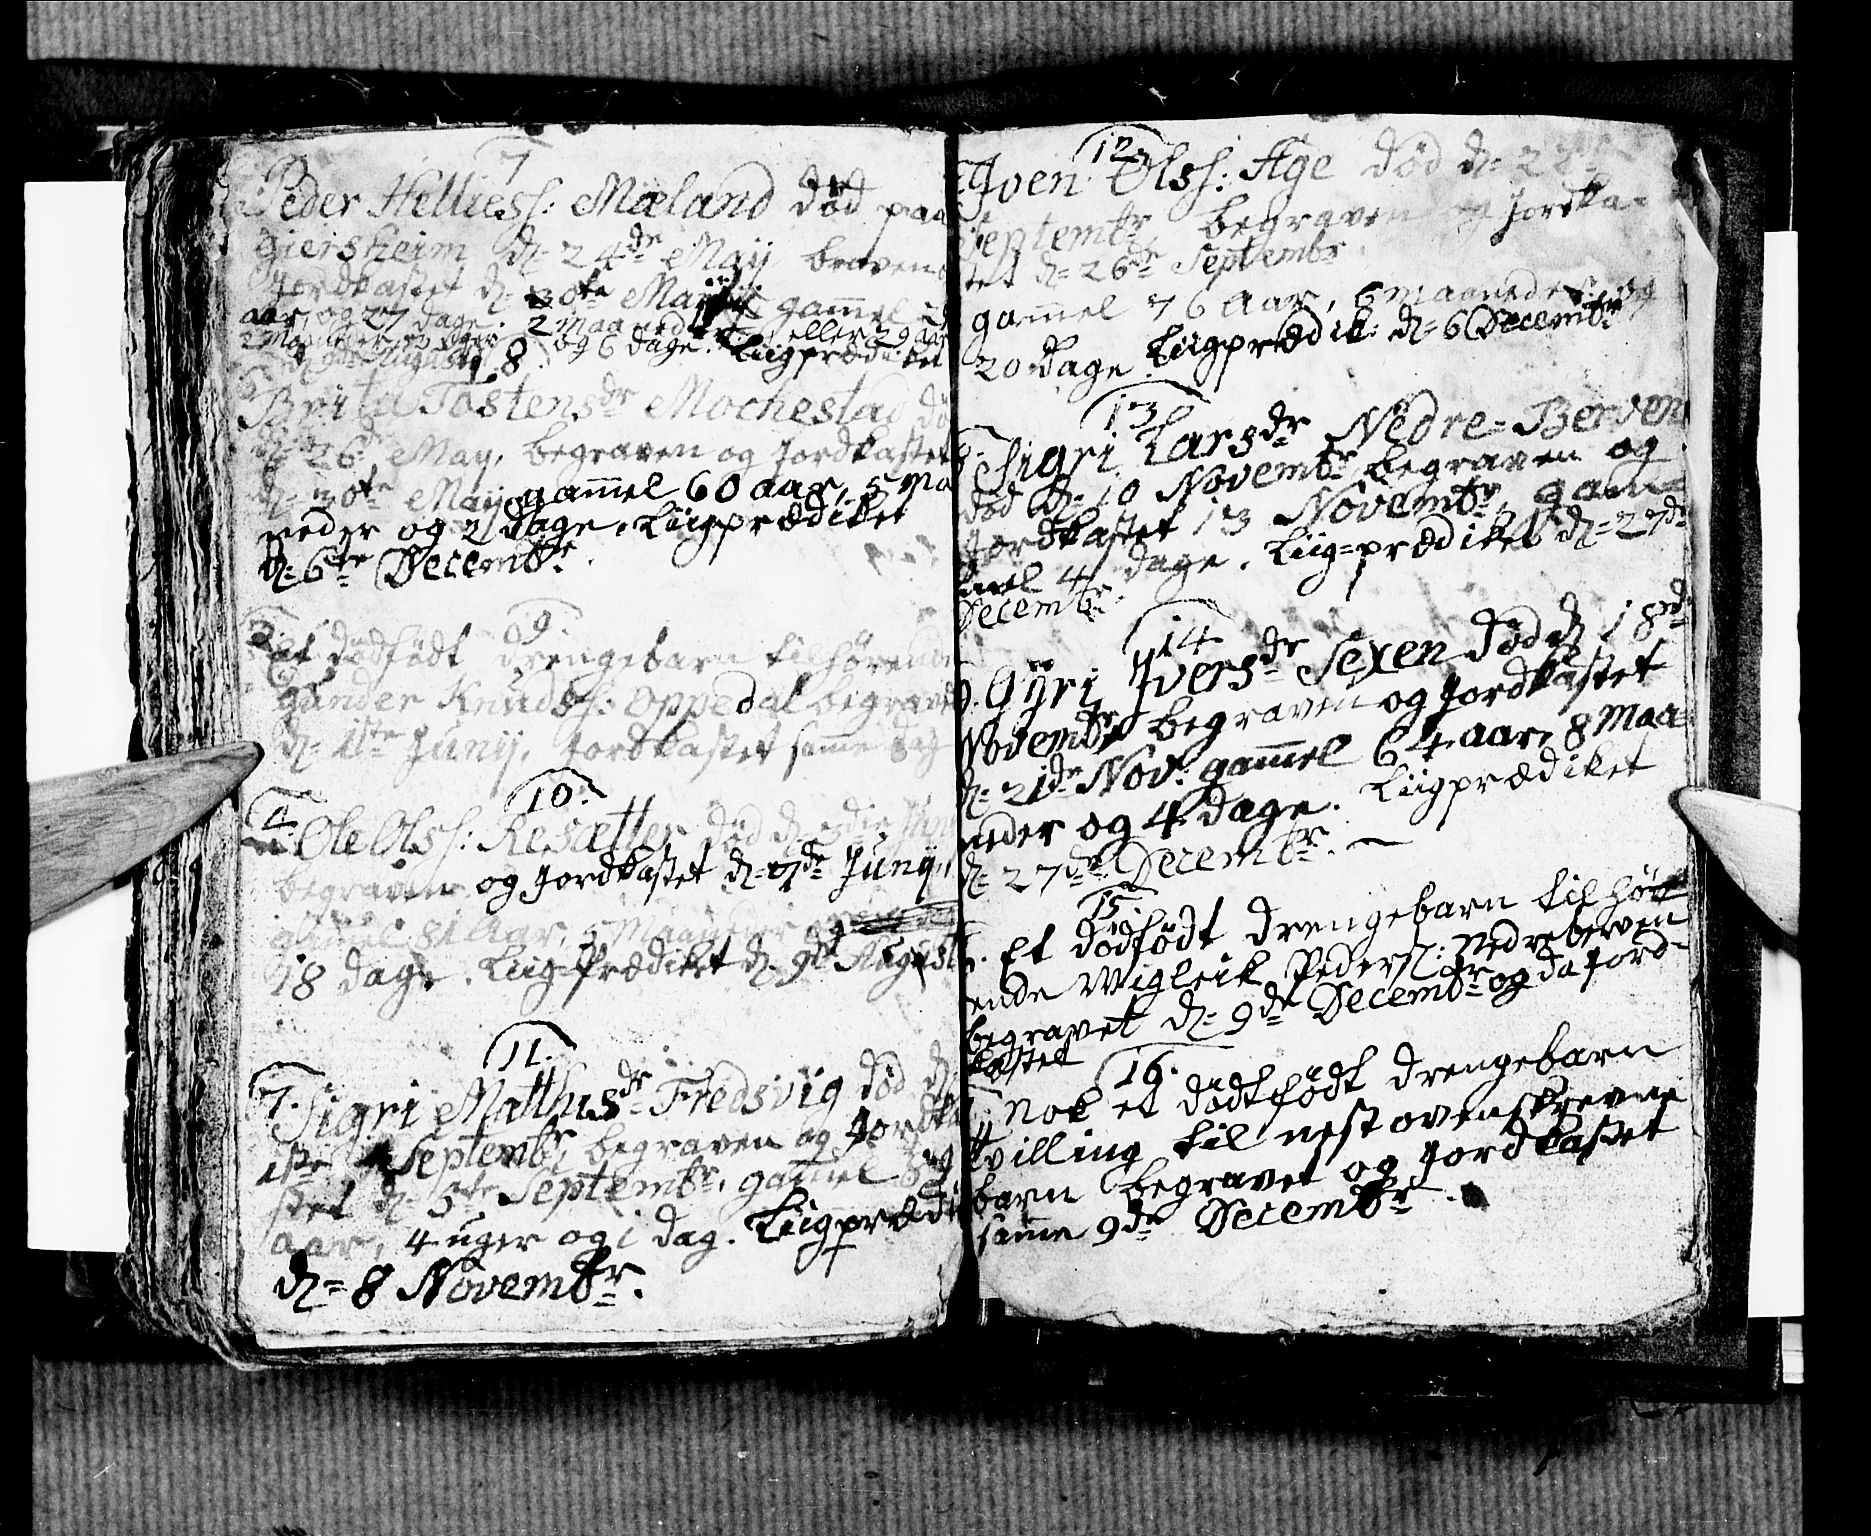 7
Peder Helliess: Mæland død paa
giersheim d= 24de Maÿ braven
Jordkastet d= 30te Maÿ gammel
aar, og 27 dage. 2 Maaneder eller 29 aar
og 6 dage. Liigprædiket
8
Brita Tostensdr Mochestad dø
d= 26de Maÿ, begraven og Jordkastet
d= 30te Maÿ gammel 60 aar, 5 Ma
neder og 2 dage. Liigprædiket
d= 6te Decembr.
9
3. Et dødfødt drengebarn tilhørende
Gunder Knuds: Oppedal begravet
d= 1ste Junij, Jordkastet samme dag
10.
4. Ole Ols: Resætter død d= 3die Jun
begraven og Jordkastet d= 7de Junÿ,
gammel 81 Aar, 5 Maaneder og
18 dage. Liig-Prædiket d. 9de August
11.
7. Sigri Matthisdr Fredsvig død d
1ste Septembr, begraven og Jordka
stet d= 5te Septembr, gammel
aar, 4 uger og 1 dag. Liigprædi
d= 8 Novembr.
12.
Iven Olss: Age død d= 22
Septembr, begraven og Jordka-
stet d= 26de Septembr
gammel 76 aar, 6 maaneder og
20 dage Liigprædik: d= 6 Decembr
13
8. Sigri Larsdr Nedre=Berven
død d= 10 Novembr begraven og
Jordkastet 13 Novembr, gam=
mel 4 dage. Liig=prædiket d= 27de
Decembr.
14
9. Gÿri Iversdr Sexen død d 18de
Novembr begraven og Jordkastet
d= 21de Nov: gammel 64 aar, 8 Maa-
neder og 4 dage. Liigprædiket
d= 27de Decembr.
15.
Et dødfødt drengebarn tilhør
ende Wigleik Peders: Nedreberven
begravet d= 9de Decembr og da Jord-
kastet
16.
Nok et dødtfødt drengebarn
tvilling til nest ovenskrevne
barn begravet og Jordkastet
samme 9de Decembr.